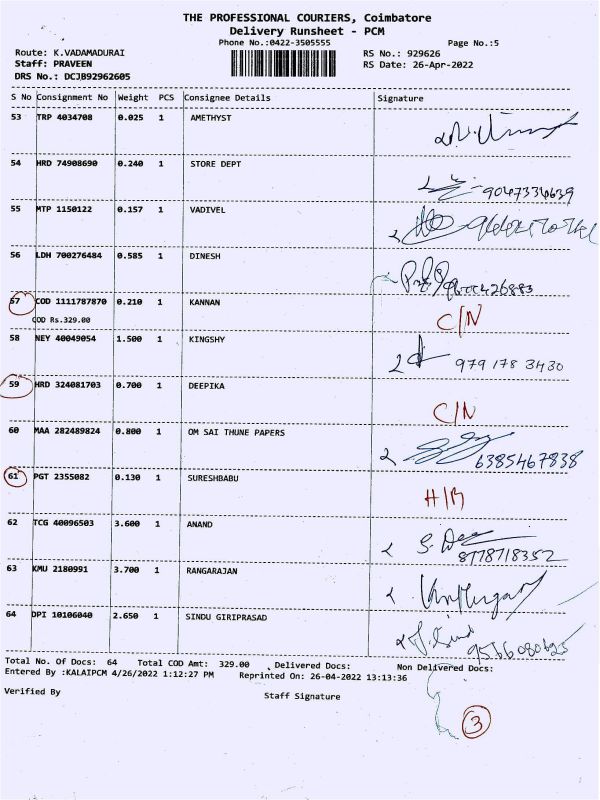 THE PROFESSIONAL COURIERS, Coimbatore
Delivery Runsheet - PCM
Phone No.:0422-3505555 Page No.:5
Route: K.VADAMADURAI RS No.: 929626
Staff: PRAVEEN RS Date: 26-Apr-2022
DRS No.: DCJB92962605
S No Consignment No Weight PCS Consignee Details Signature
53 TRP 4034708 0.025 1 AMETHYST
54 HRD 74908690 0.240 1 STORE DEPT
9047334639
55 MTP 1150122 0.157 1 VADIVEL
56 LDH 700276484 0.585 1 DINESH
57 COD 1111787870 0.210 1 KANNAN
COD Rs.329.00 C/N
58 NEY 40049054 1.500 1 KINGSHY
979 178 3430
59 HRD 324081703 0.700 1 DEEPIKA
C/N
60 MAA 282489824 0.800 1 OM SAI THUNE PAPERS
6385467838
61 PGT 2355082 0.130 1 SURESHBABU
62 TCG 40096503 3.600 1 ANAND
8778718352
63 KMU 2180991 3.700 1 RANGARAJAN
64 DPI 10106040 2.650 1 SINDU GIRIPRASAD
Total No. Of Docs: 64 Total COD Amt: 329.00 Delivered Docs: Non Delivered Docs:
Entered By :KALAIPCM 4/26/2022 1:12:27 PM Reprinted On: 26-04-2022 13:13:36
Verified By Staff Signature
3